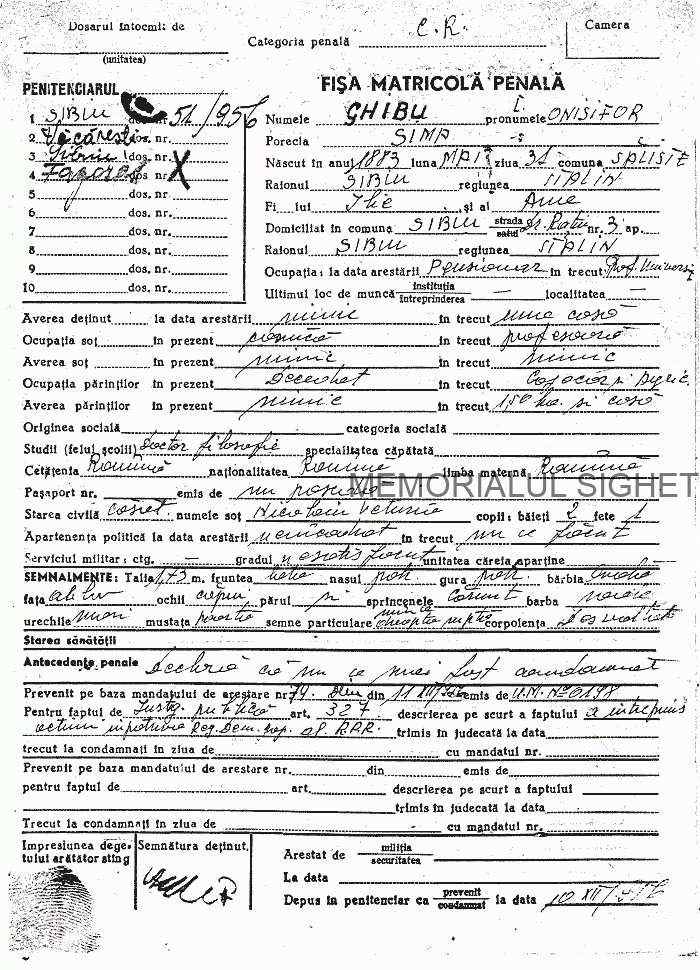 Dosarul întocmit de
(unitatea)
Categoria penală C.R.
Camera
PENITENCIARUL
FIȘA MATRICOLĂ PENALĂ
1 SIBIU dos. nr. 51/956
2 Văcărești dos. nr.
3 Sibiu dos. nr. X
4 Făgăraș dos. nr.
5 dos. nr.
6 dos. nr.
7 dos. nr.
8 dos. nr.
9 dos. nr.
10 dos. nr.
Numele GHIBU pronumele ONISIFOR
Porecla
Născut în anul 1883 luna MAI ziua 31 comuna SALIȘTE
Raionul SIBIU regiunea STALIN
Fi lui Ilie și al Ana
Domiciliat în comuna SIBIU strada satul Dr. Rațiu nr. 3 ap.
Raionul SIBIU regiunea STALIN
Ocupația: la data arestării Pensionar în trecut Prof. Univers
Ultimul loc de muncă instituția întreprinderea — localitatea —
Averea deținut la data arestării nimic în trecut una casă
Ocupația soț în prezent casnică în trecut profesoară
Averea soț în prezent nimic în trecut nimic
Ocupația părinților în prezent Decedat în trecut Cojocar și
Averea părinților în prezent nimic în trecut 1,50 ha. și casă
Originea socială categoria socială
Studii (felul școlii) Doctor filosofie specialitatea căpătată
Cetățenia Romînă naționalitatea Romînă limba maternă Romînă
MEMORIALUL SIGHET
Pașaport nr. emis de nu posedă
Starea civilă casat numele soț Nicoleta Veturia copii: băieți 2 fete 1
Apartenența politică la data arestării neîncadrat în trecut nu a făcut
Serviciul militar: ctg. — gradul unitatea căreia aparține —
SEMNALMENTE: Talia 1,73 m. fruntea nasul gura bărbia
fața ochii părul sprîncenele cărunt barba
urechile mari mustața semne particulare corpolența
Starea sănătății
Antecedente penale Declară că nu a mai fost condamnat
Prevenit pe baza mandatului de arestare nr. 74. din 11 XII emis de U.M. No 0198
Pentru faptul de Instig. publică art. 327 descrierea pe scurt a faptului a întreprins
acțiuni împotriva Reg. Dem. Pop. al R.P.R. trimis în judecată la data
trecut la condamnați în ziua de cu mandatul nr.
Prevenit pe baza mandatului de arestare nr. din emis de
pentru faptul de art. descrierea pe scurt a faptului
trimis în judecată la data
Trecut la condamnați în ziua de cu mandatul nr.
Impresiunea degetului arătător stîng
Semnătura deținut.
Arestat de miliția securitatea
La data
Depus în penitenciar ca prevenit condamnat la data 10 XII/956